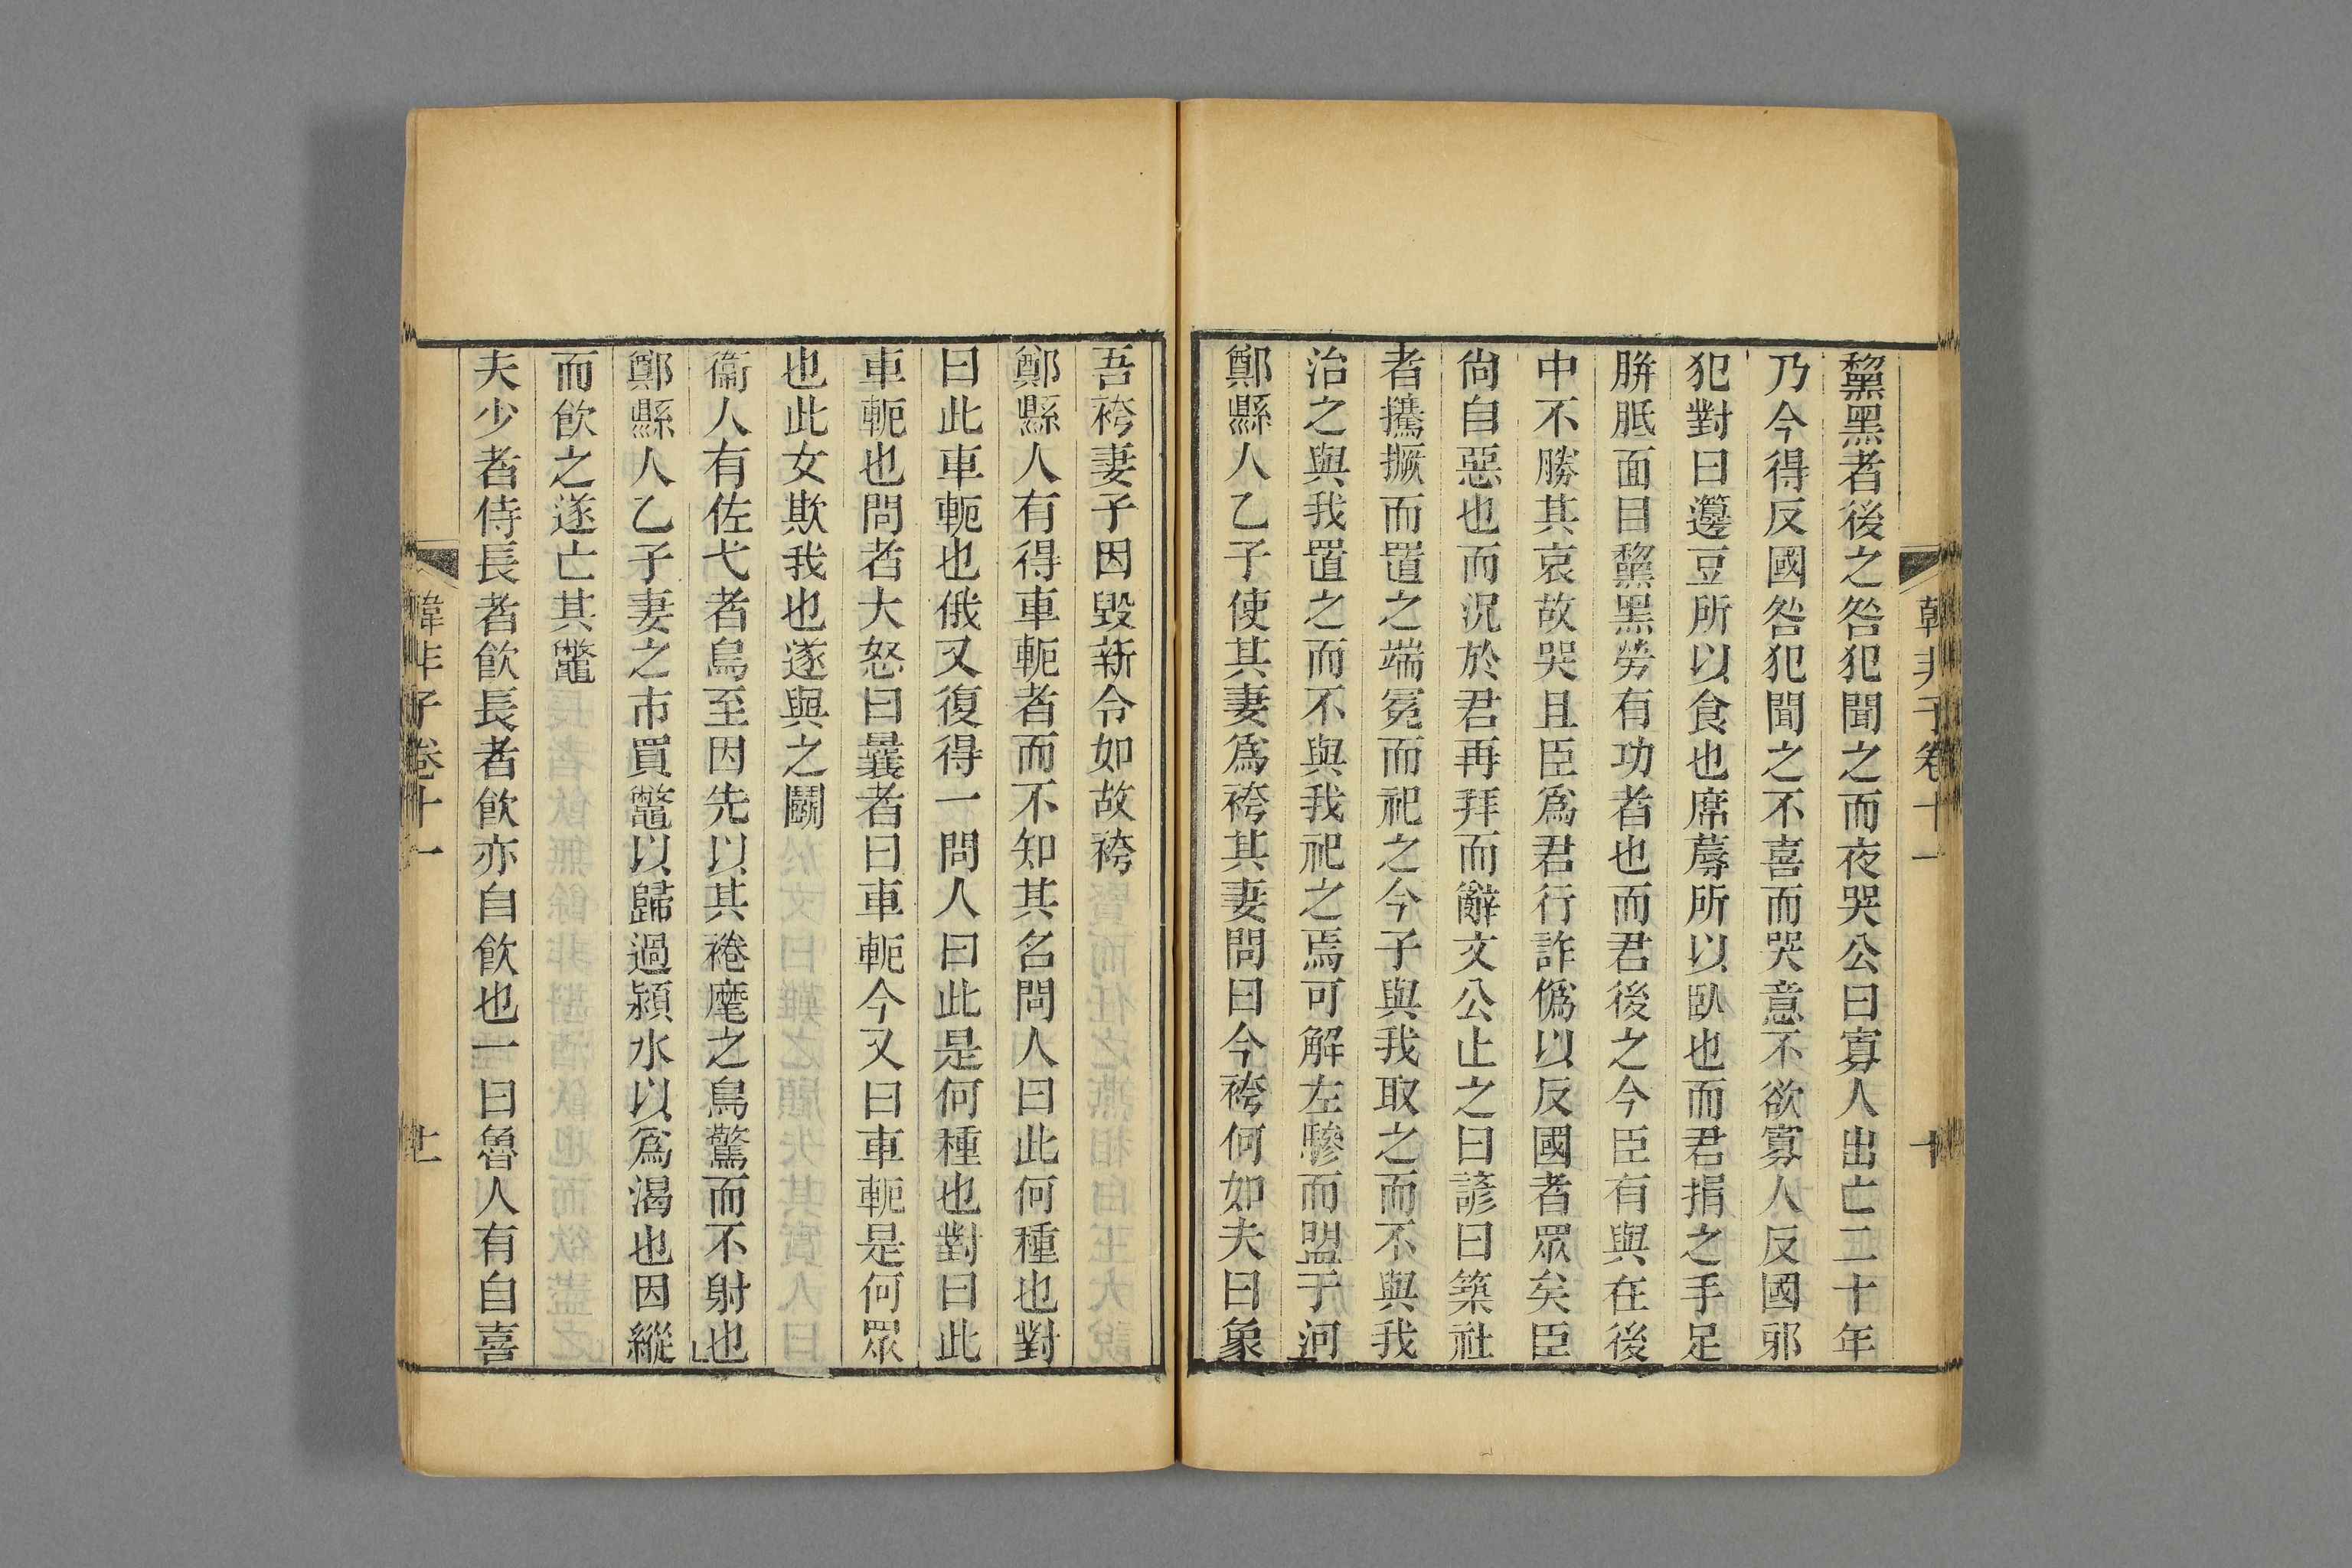 韓非子卷十一
十
黧黑者後之咎犯聞之而夜哭公曰寡人出亡二十年
乃今得反國咎犯聞之不喜而哭意不欲寡人反國邪
犯對曰籩豆所以食也席蓐所以臥也而君捐之手足
胼胝面目黧黑勞有功者也而君後之今臣有與在後
中不勝其哀故哭且臣爲君行詐僞以反國者眾矣臣
尙自惡也而況於君再拜而辭文公止之曰諺曰築社
者攓撅而置之端冕而祀之今子與我取之而不與我
治之與我置之而不與我祀之焉可解左驂而盟于河
鄭縣人乙子使其妻爲袴其妻問曰今袴何如夫曰象
吾袴妻子因毀新令如故袴
鄭縣人有得車軛者而不知其名問人曰此何種也對
曰此車軛也俄又復得一問人曰此是何種也對曰此
車軛也問者大怒曰曩者曰車軛今又曰車軛是何眾
也此女欺我也遂與之鬭
衞人有佐弋者鳥至因先以其裷麾之鳥驚而不射也
鄭縣人乙子妻之市買鼈以歸過潁水以爲渴也因縱
而飮之遂亡其鼈
夫少者侍長者飮長者飮亦自飮也一曰魯人有自喜
韓非子卷十一
十一